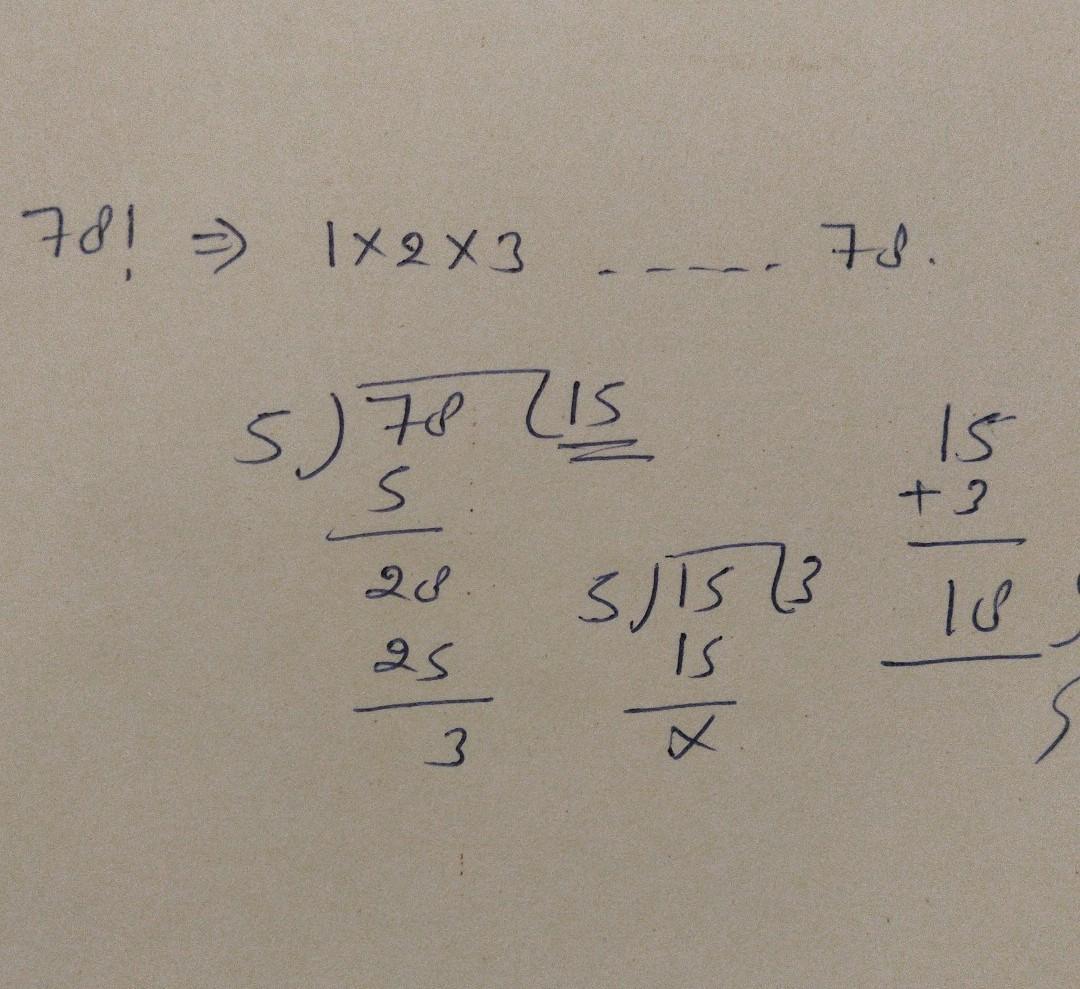 78! ⇒ 1×2×3 ------ 78.
5) 78 (15
5
28
25
3
5) 15 (3
15
×
15
+ 3
18